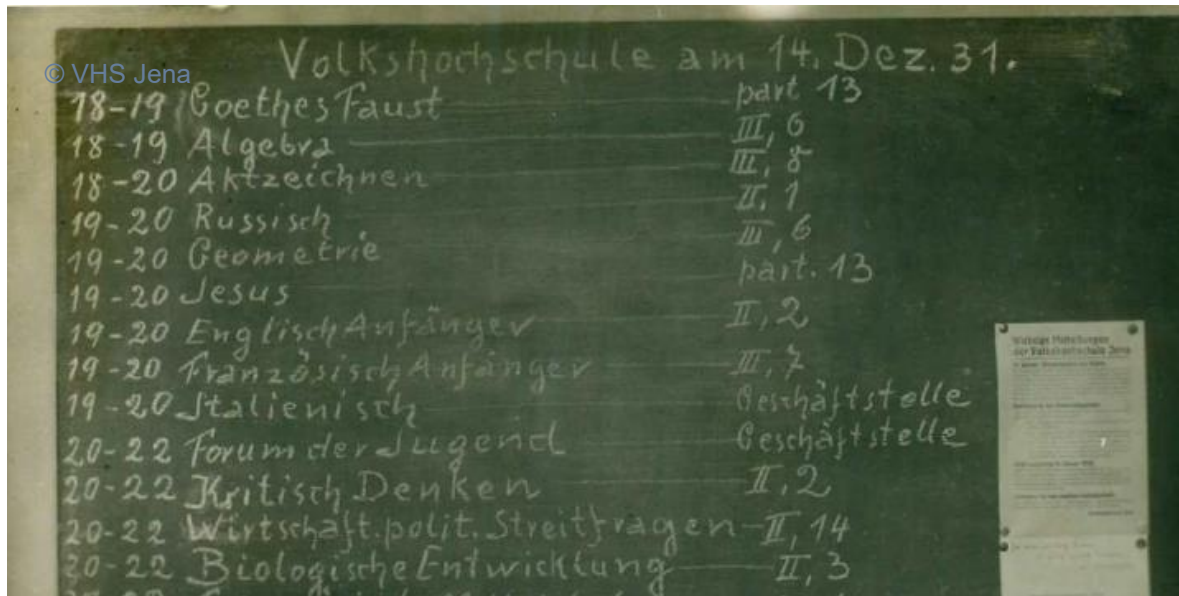 Volkshochschule am 14. Dez. 31.
© VHS Jena
18-19 Goethes Faust part 13
18-19 Algebra III, 6
18-20 Aktzeichnen III, 8
19-20 Russisch II, 1
19-20 Geometrie III, 6
19-20 Jesus part. 13
19-20 Englisch Anfänger II, 2
19-20 Französisch Anfänger III, 7
19-20 Italienisch Geschäftstelle
20-22 Forum der Jugend Geschäftstelle
20-22 Kritisch Denken II, 2
20-22 Wirtschaft. polit. Streitfragen II, 14
20-22 Biologische Entwicklung II, 3
Wichtige Mitteilungen
der Volkshochschule Jena